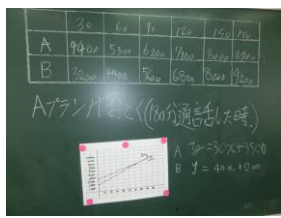 30 60 90 120 150 180
A 4400 5300 6200 7100 8000 8900
B 3200 4400 5600 6800 8000 9200
Aプランがおとく(180分通話した時.
A y=30x+3500
B y=40x+2000